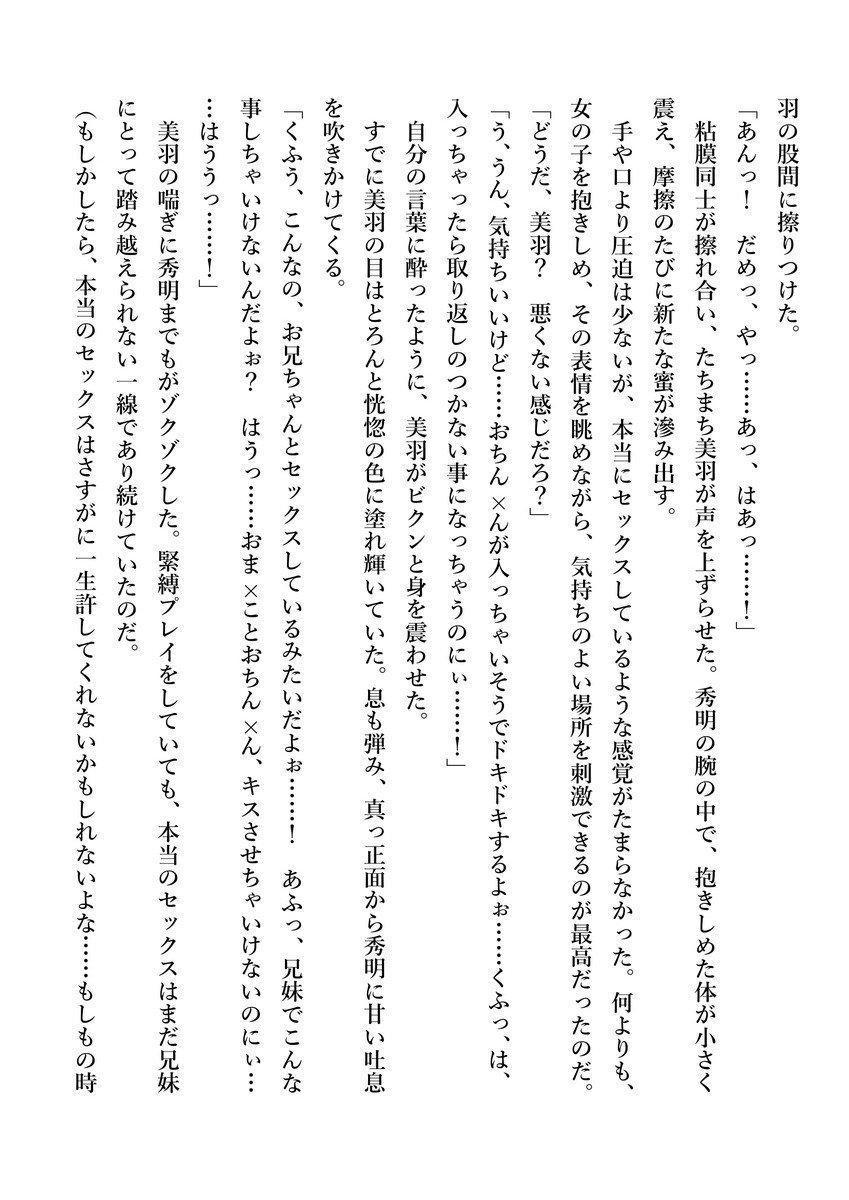 羽の股間に擦りつけた。
「あんっ！　だめっ、やっ……あっ、はあっ……！」
粘膜同士が擦れ合い、たちまち美羽が声を上ずらせた。秀明の腕の中で、抱きしめた体が小さく
震え、摩擦のたびに新たな蜜が滲み出す。
手や口より圧迫は少ないが、本当にセックスしているような感覚がたまらなかった。何よりも、
女の子を抱きしめ、その表情を眺めながら、気持ちのよい場所を刺激できるのが最高だったのだ。
「どうだ、美羽？　悪くない感じだろ？」
「う、うん、気持ちいいけど……おちん×んが入っちゃいそうでドキドキするよぉ……くふっ、は、
入っちゃったら取り返しのつかない事になっちゃうのにぃ……！」
自分の言葉に酔ったように、美羽がビクンと身を震わせた。
すでに美羽の目はとろんと恍惚の色に塗れ輝いていた。息も弾み、真っ正面から秀明に甘い吐息
を吹きかけてくる。
「くふう、こんなの、お兄ちゃんとセックスしているみたいだよぉ……！　あふっ、兄妹でこんな
事しちゃいけないんだよぉ？　はうっ……おま×ことおちん×ん、キスさせちゃいけないのにぃ…
…はううっ……！」
美羽の喘ぎに秀明までもがゾクゾクした。緊縛プレイをしていても、本当のセックスはまだ兄妹
にとって踏み越えられない一線であり続けていたのだ。
（もしかしたら、本当のセックスはさすがに一生許してくれないかもしれないよな……もしもの時